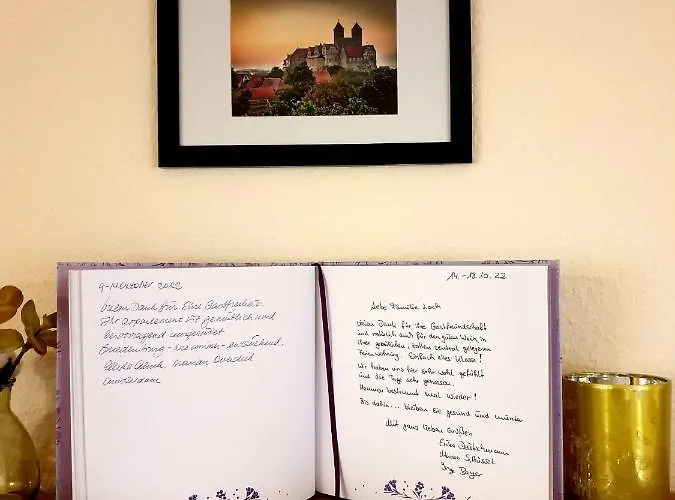 9-14 Oktober 2022
Vielen Dank für Eure Gastfreiheit.
Ihr Appartement ist gemütlich und
hervorragend ausgerüstet
Amsterdam
14.-18.10.22
Liebe Familie Loch
Vielen Dank für Ihre Gastfreundschaft
und natürlich auch für den guten Wein, in
Ihrer gemütlichen, tollen zentral gelegenen
Ferienwohnung. Einfach alles Klasse!
Wir haben uns hier sehr wohl gefühlt
und die Tage sehr genossen.
Kommen bestimmt mal wieder!
Bis dahin... bleiben Sie gesund und munter
Mit ganz lieben Grüßen
Inge Bayer